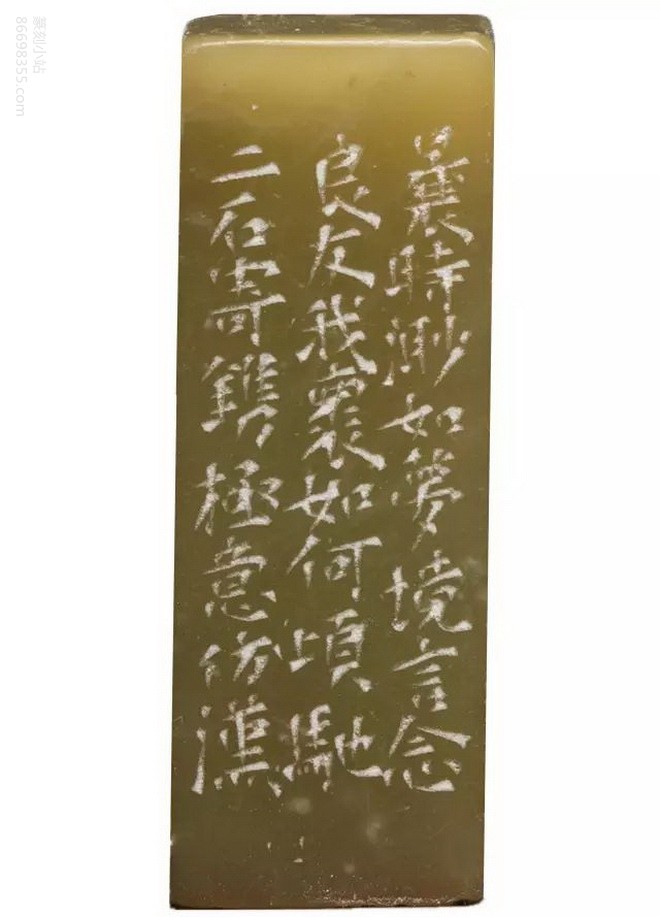 曩時渺如夢境言念
良友我褱如何頃馳
二石寄鐫極意仿漢
篆刻小站
86698355.com